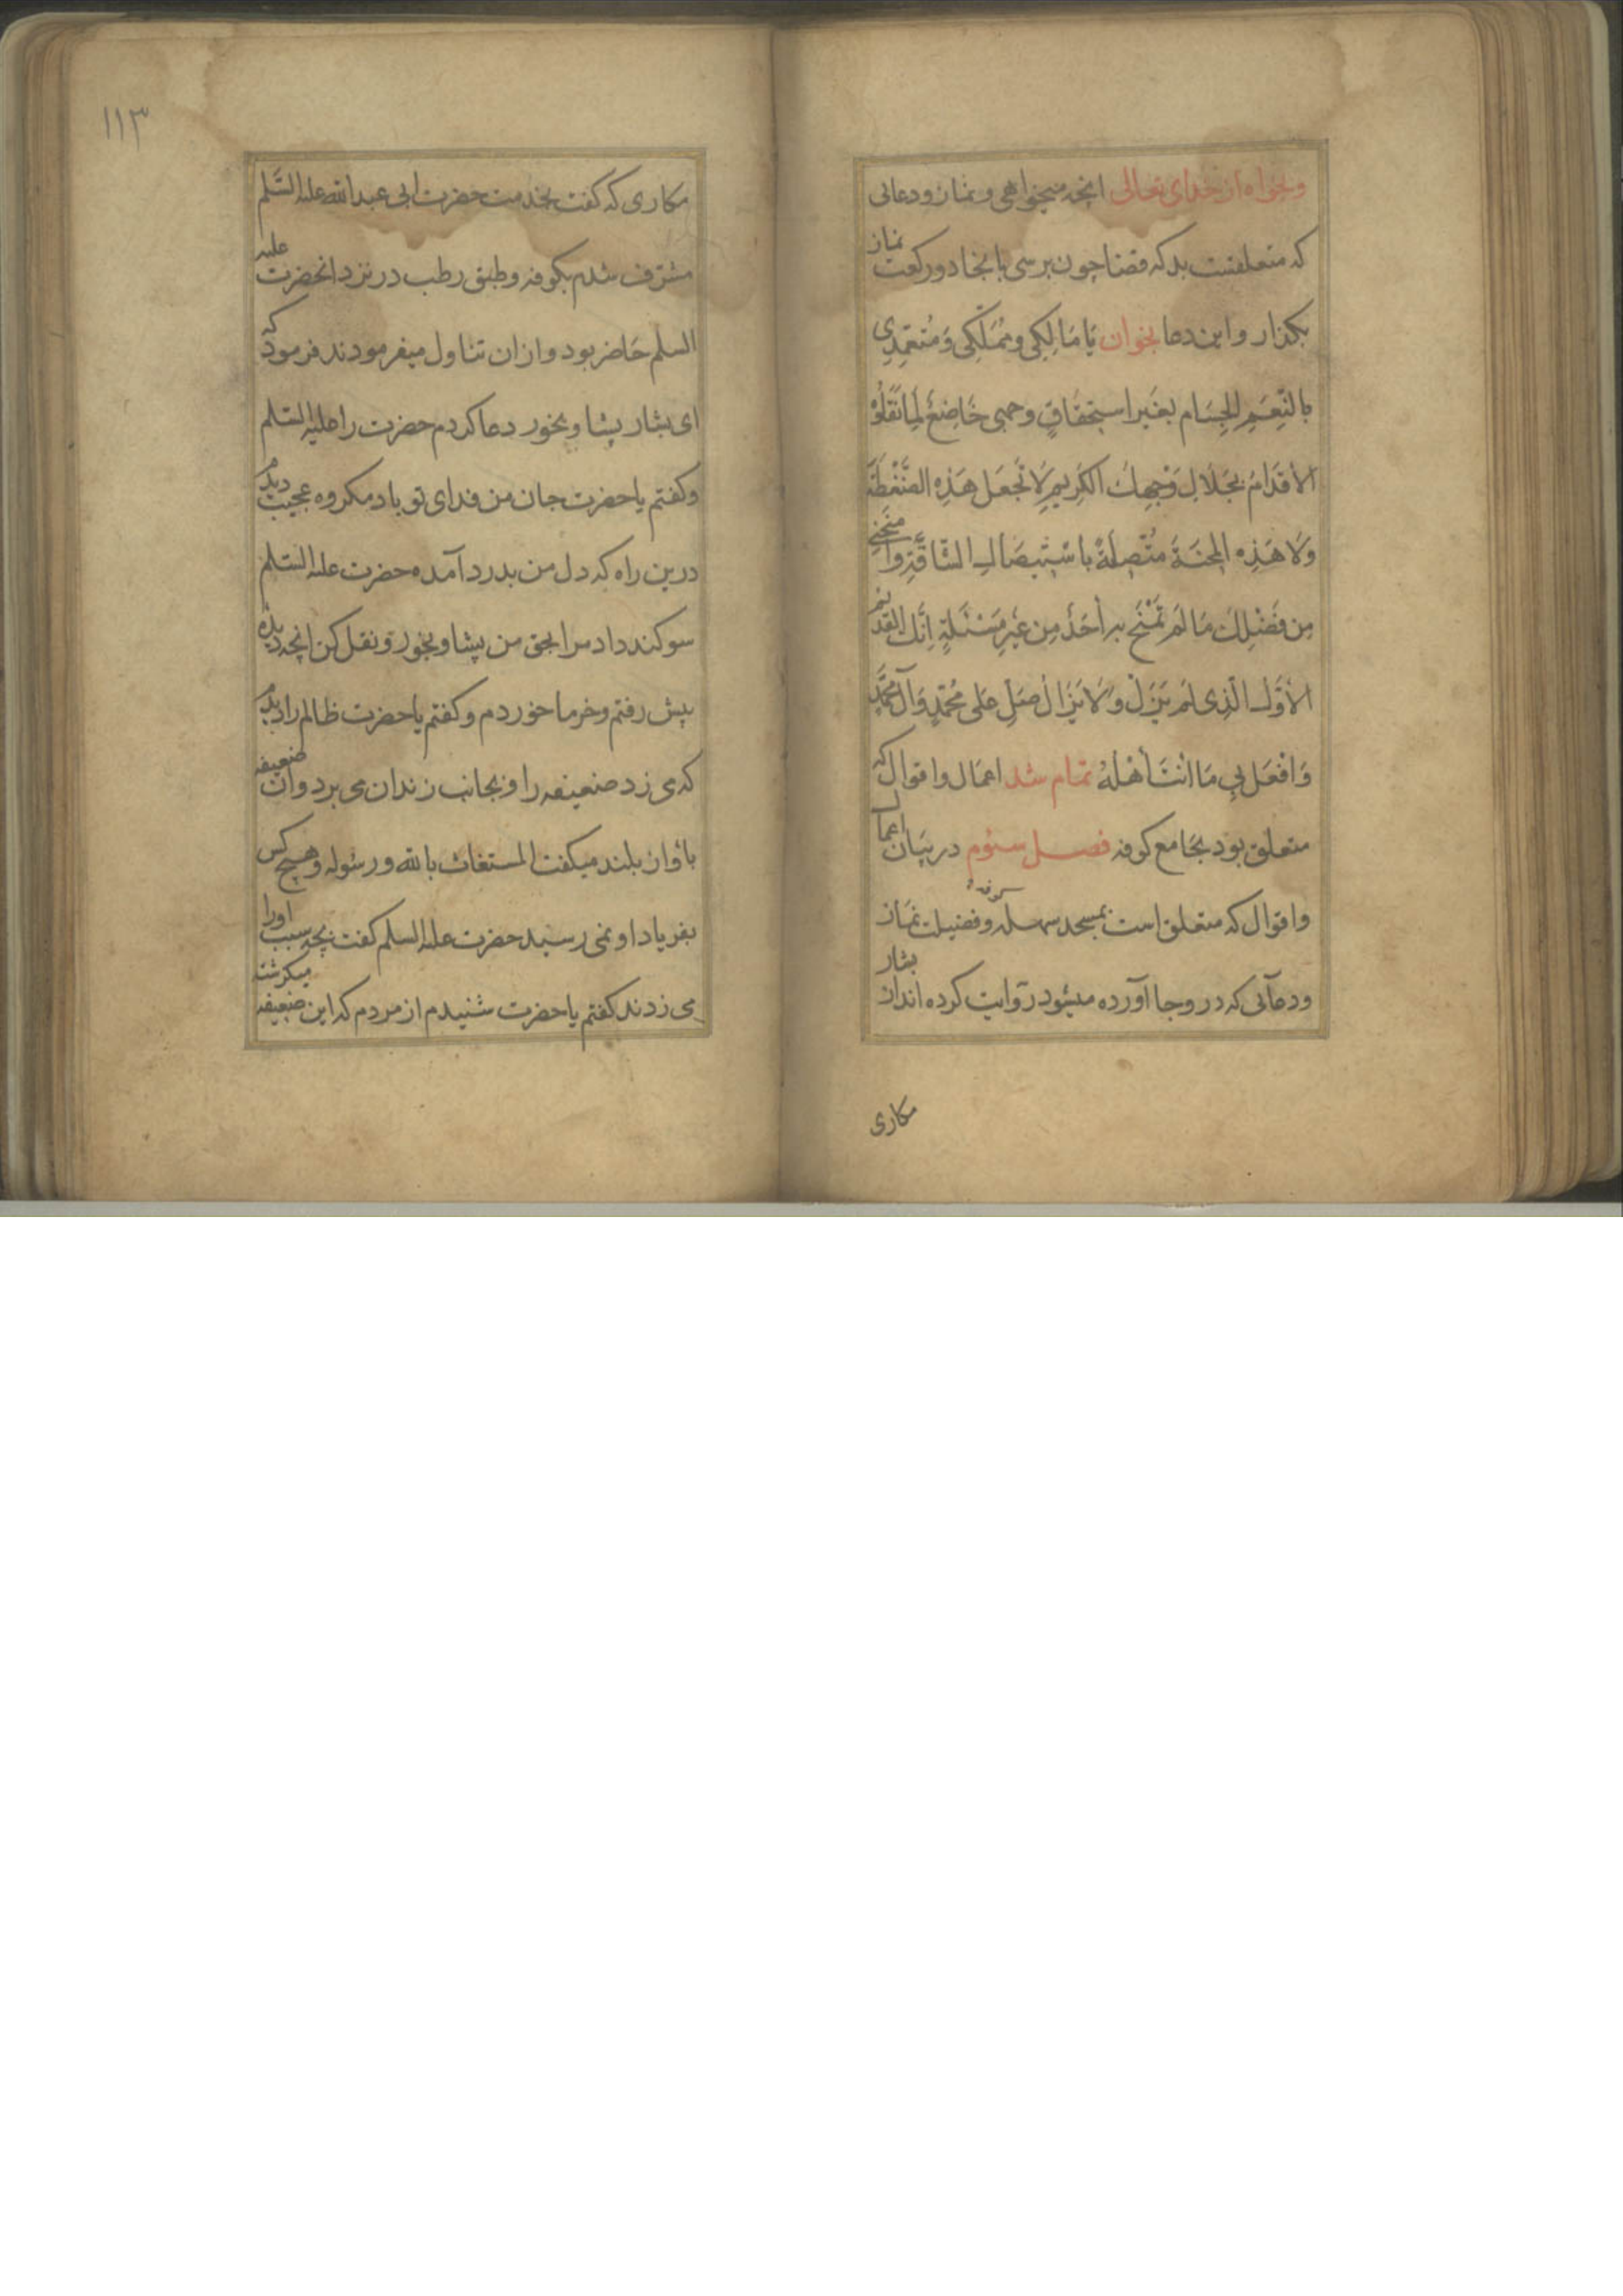 وبخواه از خدای تعالی انچه میخواهی و نماز و دعائی
که متعلقست بدکه قضا چون برسی بانجا دو رکعت نماز
بکذار و این دعا بخوان یَا مَالِکِی وَمُمَلِّکِی وَمُتَغَمِّدِی
بِالنِّعَمِ الجِسَامِ بِغَیرِ استِحقَاقٍ وجهی خَاضِعٌ لِمَا تَعْلُوهُ
الاَقدَامُ بِجَلَالِ وَجْهِكَ الکَرِیمِ لَا تَجعَل هَذِهِ الضَّغْطَةَ
وَلَا هَذِهِ المِحنَةَ مُتَّصِلَةً بِاسْتِیصَالِ الشَّاقَّةِ وامنحنی
مِن فَضْلِكَ مَا لَم تَمْنَح بِهِ أحَدٌ مِن غَیرِ مَسْئَلَةٍ اِنَّكَ القَدِیم
الاَوَّلُ الَّذِی لَم یَزَل وَلَا یَزَالُ صَلِّ عَلی مُحَمَّدٍ وَآلِ مُحَمَّدٍ
وَافعَل بِی مَا انْتَ أهْلُهُ تمام شد اعمال و اقوال که
متعلق بود بجامع کوفه فصل سئوم در بیان اعمال
و اقوال که متعلق است بمسجد سهله کوفه و فضیلت نماز
و دعائی که در وجا آورده میشود روایت کرده اند از بشار
مکاری
۱۱۳
مکاری که کفت بخدمت حضرت ابی عبدالله علیه السَّلم
مشرف شدم بکوفه و طبق رطب در نزد انحضرت علیه
السلم حاضر بود و ازان تناول میفرمودند فرمود که
ای بشار پیشا و بخور دعا کردم حضرت را علیه السّلم
و کفتم یا حضرت جان من فدای تو باد مکروه عجیب دیدم
درین راه که دل من بدرد آمده حضرت علیه السّلم
سوکند داد مرا بحق من پیشا و بخور و نقل کن انچه دیدهٔ
پیش رفتم و خرما خوردم و کفتم یا حضرت ظالم را دیدم
که می زد ضعیفه را و بجانب زندان می برد و ان ضعیفه
باواز بلند میکفت المستغاث بالله و رسوله و هیچ کس
بفریاد او نمی رسید حضرت علیه السلم کفت بچه سبب او را
می زدند کفتم یا حضرت شنیدم از مردم که این ضعیفه میکرشته